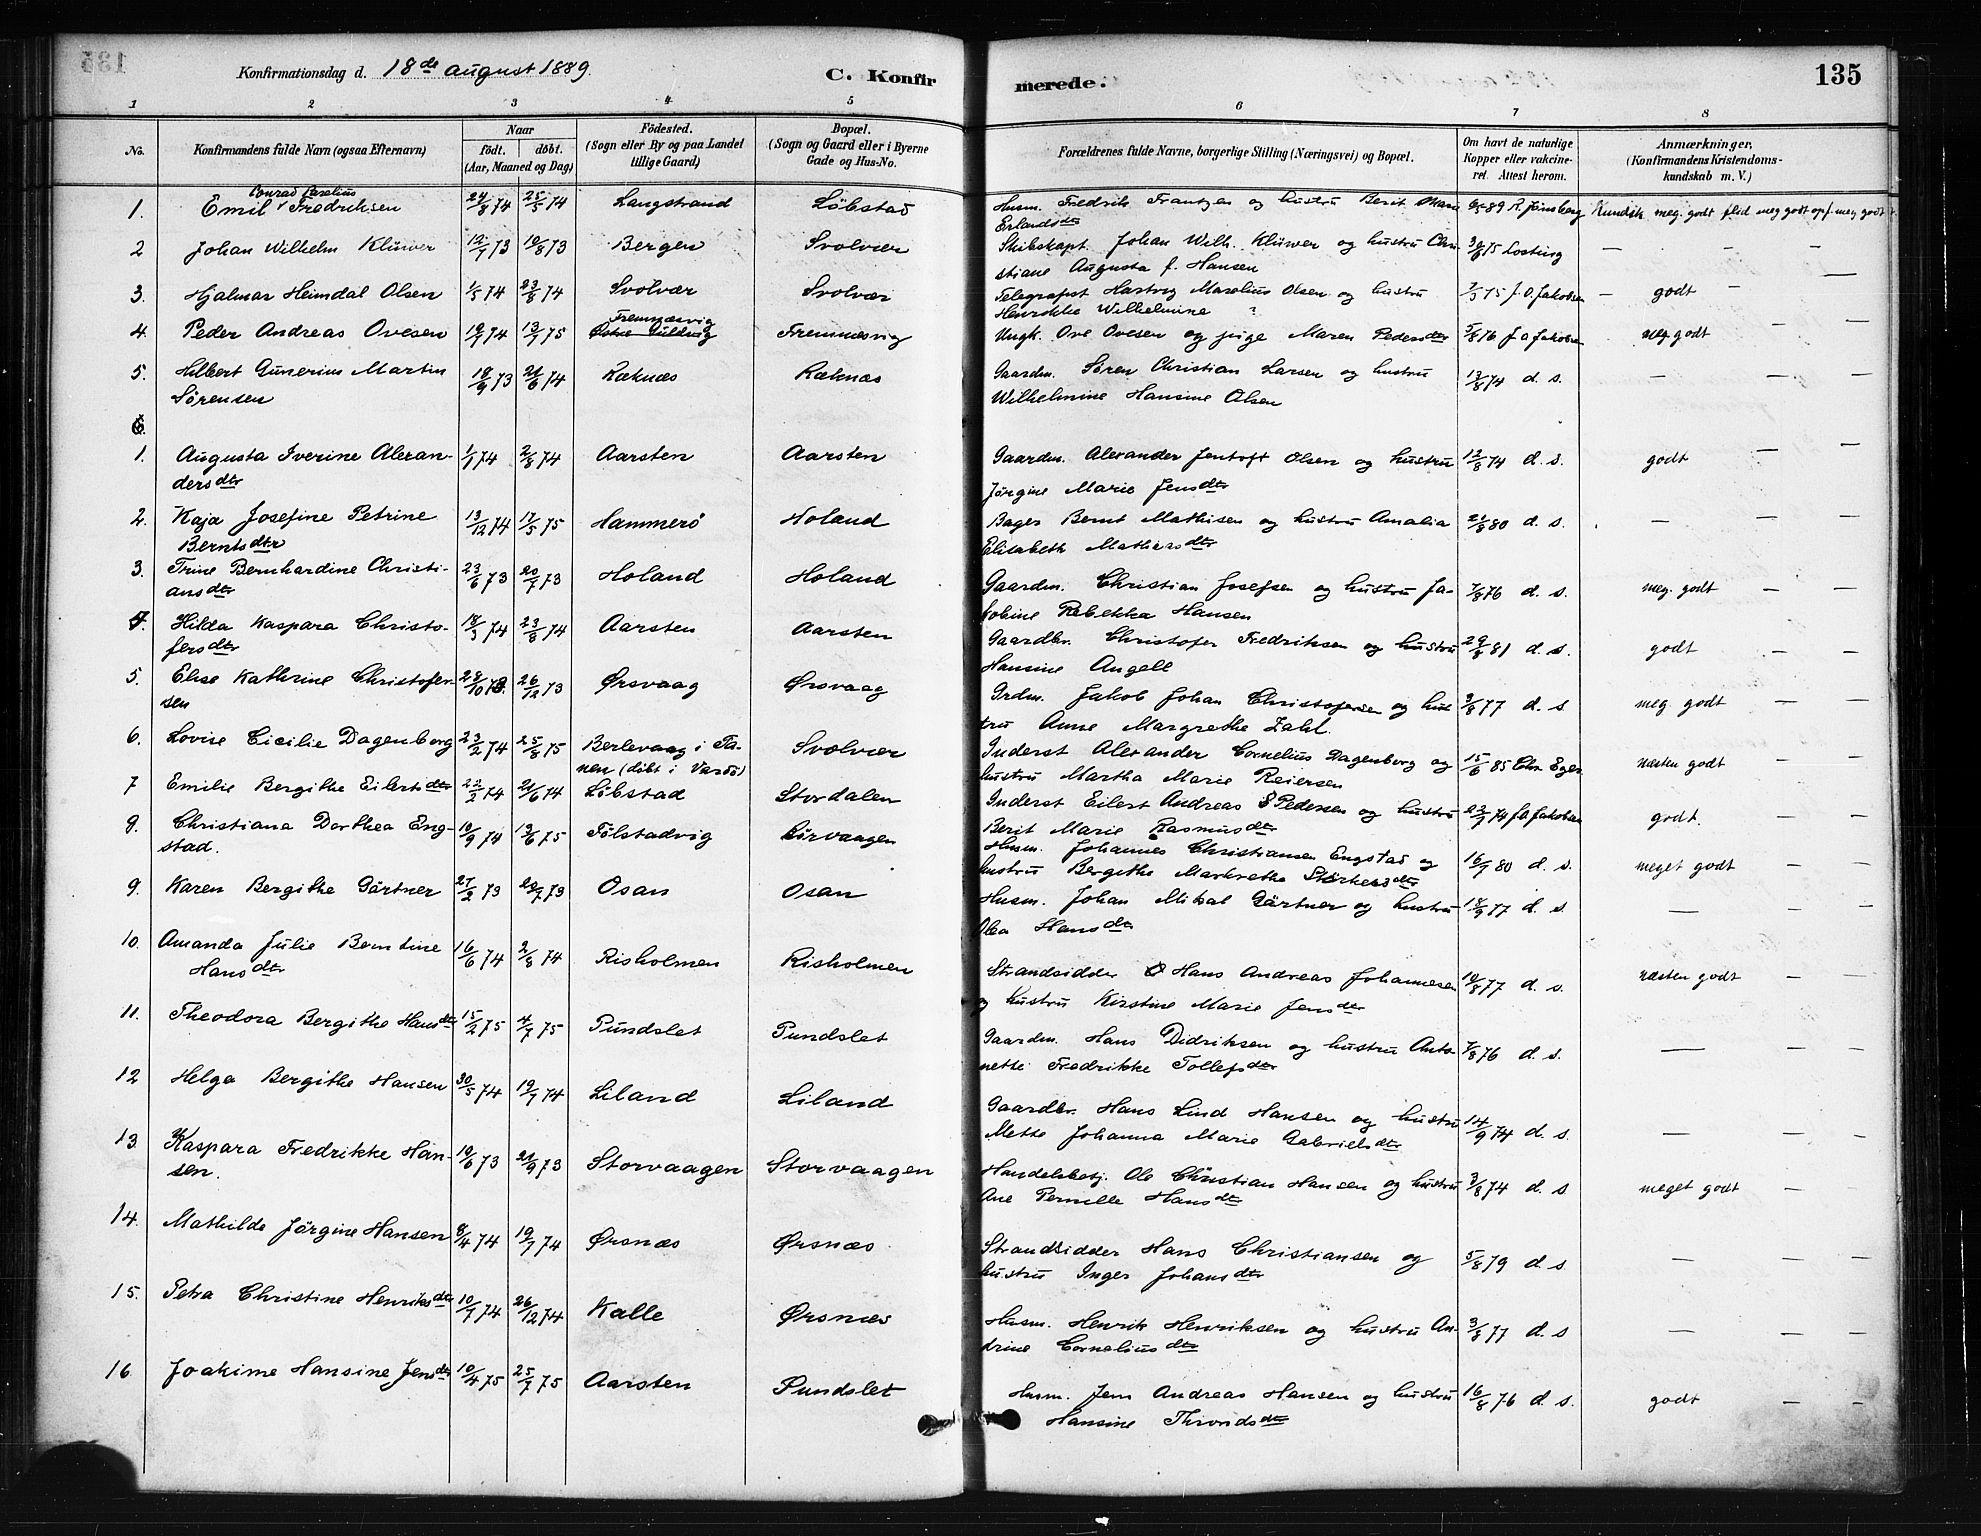 Konfirmationsdag d. 18de august 1889.
C. Konfir
merede.
135
1 2 3 4 5 6 7 8
No.
Konfirmandens fulde Navn (ogsaa Efternavn)
Naar
født. døbt.
(Aar, Maaned og Dag)
Fødested.
(Sogn eller By og paa Landet
tillige Gaard)
Bopæl.
(Sogn og Gaard eller i Byerne
Gade og Hus-No.
Forældrenes fulde Navne, borgerlige Stilling (Næringsvei) og Bopæl.
Om havt de naturlige
Kopper eller vakcine-
ret. Attest herom.
Anmærkninger,
(Konfirmandens Kristendoms-
kundskab m. V.)
Conrad
1. Emil Fredriksen 24/8 74 25/5 74 Langstrand Løbstad Husm. Fredrik Frantzen og hustru Berit
Erlandsdtr Kundsk. meg. godt flid meg godt opf. meg godt
2 Johan Wilhelm Klüwer 12/7 73 10/8 73 Bergen Svolvær Skibskapt. Johan Wilh. Klüwer og hustru Chri-
stiane Augusta f. Hansen — — —
3. Hjalmar Heimdal Olsen 1/5 74 23/8 74 Svolvær Svolvær Telegrafist Hartvig Marelius Olsen og hustru 2/3 75 J. O. Jakobsen — godt —
Henrikke Wilhelmine ?
Fremnæsvig
4. Peder Andreas Ovesen 19/7 74 13/7 75 Fremnæsvig Ungk. Ove Ovesen og pige Maren Pedersdtr 5/8 76 J O Jakobsen meg godt — —
5. Hilbert Gunerius Martin 18/9 73 21/6 74 Ræknæs Ræknæs Gaardm. Søren Christian Larsen og hustru 13/8 74 d. s. — — —
Sørensen Wilhelmine Hansine Olsen
6.
1. Augusta Iverine Alexan- 1/1 74 2/8 74 Aarsten Aarsten Gaardm. Alexander Jentoft Olsen og hustru 12/8 74 d. s. godt — —
dersdtr Jørgine Marie Jensdtr
2. Kaja Josefine Petrine 13/12 74 17/5 75 Hammerö Holand Bager Bernt Mathisen og hustru Amalia 21/8 80 d. s. — — —
Berntsdtr Elisabeth Mathiasdtr
3. Trine Bernhardine Christi- 23/6 73 20/7 73 Holand Holand Gaardm. Christian Josefsen og hustru Ja- 7/8 76 d. s. meg. godt — —
ansdtr kobine Rebekka Hansen
4. Hilda Kaspara Christo- 18/3 74 23/8 74 Aarsten Aarsten Gaardbr. Christofer Fredriksen og hustru 29/8 81 d. s. godt — —
fersdtr Hansine Angell
5. Elise Kathrine Christofer- 23/10 73 26/12 73 Ørsvaag Ørsvaag Grdm. Jakob Johan Christofersen og hus- 3/8 77 d. s meg godt — —
sen tru Anne Margrethe Zahl.
6. Lovise Cicilie Dagenborg 23/2 74 25/8 75 Berlevaag i Ta- Svolvær Inderst Alexander Cornelius Dagenborg og 15/6 85 Chr. Eger næsten godt — —
nen (døbt i Vardø) hustru Martha Marie Reiersen
7 Emilie Bergithe Eilertsdtr 22/2 74 21/6 74 Løbstad Stordalen Inderst Eilert Andreas Pedersen og hustru 23/7 74 J O Jakobsen godt. — —
Berit Marie Rasmusdtr
8. Christiana Dorthea Eng- 10/9 74 13/6 75 Tølstadvig Kirvaagen Husm. Johannes Christiansen Engstad og 16/7 80 d. s. meget godt — —
stad. hustru Bergithe Markrethe Størkersdtr
9. Karen Bergithe Gärtner 27/2 73 20/7 73 Osan Osan Husm. Johan Mikal Gärtner og hustru 18/9 77 d. s — — —
Olea Hansdtr
10. Amanda Julie Berntine 16/6 74 2/8 74 Risholmen Risholmen Strandsidder Hans Andreas Johannesen 10/8 77 d. s. næsten godt — —
Hansdtr og hustru Kirstine Marie Jensdtr
11. Theodora Bergithe Hansdtr 15/2 75 4/7 75 Pundslet Pundslet Gaardm. Hans Didriksen og hustru Anto- 7/8 76 d. s. — — —
nette Fredrikke Tollefsdtr
12 Helga Bergithe Hansen 30/5 74 19/7 74 Liland Liland Gaardbr. Hans Lind Hansen og hustru 14/9 74 d. s. — — —
Mette Johanna Marie Gabrielsdtr
13. Kaspara Fredrikke Han- 19/6 73 21/9 73 Storvaagen Storvaagen Handelsbetj. Ole Christian Hansen og hustru 3/8 74 d. s meget godt — —
sen. Ane Pernille Hansdtr
14. Mathilde Jørgine Hansen 8/4 74 19/7 74 Ørsnæs Ørsnæs Strandsidder Hans Christiansen og 5/8 79 d. s — — —
hustru Inger Johansdtr
15. Petra Christine Henriksdtr 10/7 74 26/12 74 Kalle Ørsnæs Husm. Henrik Henriksen og hustru An- 3/8 77 d. s — — —
drine Corneliusdtr
16 Joakime Hansine Jensdtr 10/4 75 25/7 75 Aarsten Pundslet Husm. Jens Andreas Hansen og hustru 16/8 76 d. s. godt — —
Hansine Throndsdtr